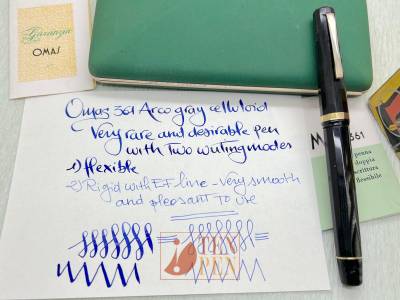 Garanzia
OMAS
Omas 361 Arco gray celluloid
Very rare and desirable pen
with two writing modes
1) flexible
2) Rigid with EF line - very smooth
and pleasant to use
361
penna
doppia
scrittura
flessibile
MY
PEN